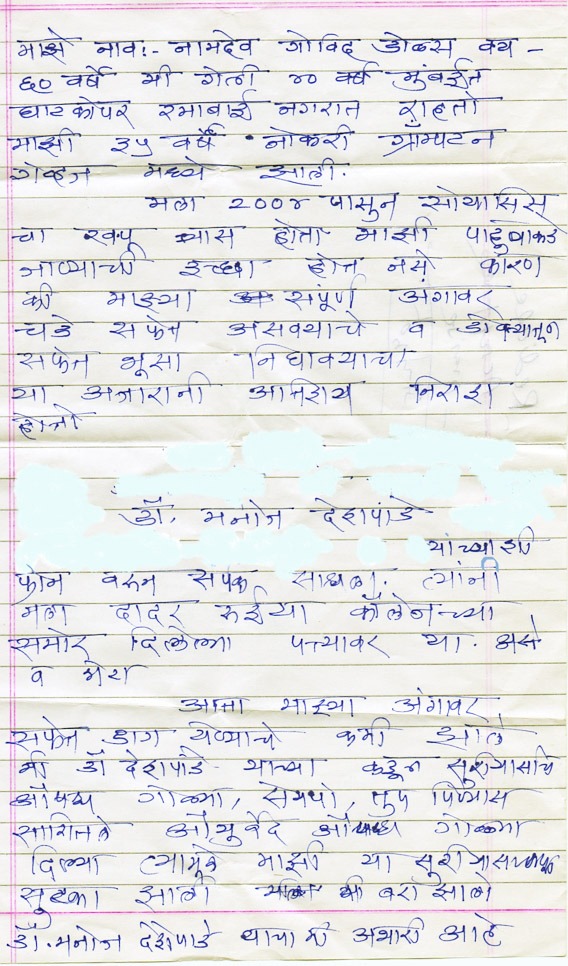 माझे नाव:- नामदेव गोविंद डोळस वय -
६० वर्षे मी गेली ४० वर्षे मुंबईत
घाटकोपर रमाबाई नगरात राहतो
माझी ३५ वर्षे नोकरी क्रॉम्पटन
ग्रेव्हज मध्ये झाली.
मला २००४ पासुन सोयासिस
चा खूप त्रास होता माझी पाहुण्याकडे
जाण्याची इच्छा होत नसे कारण
की माझ्या संपूर्ण अंगावर
चट्टे सफेत असवयाचे व डोक्यातून
सफेत भूसा निघावयाचा
या अजारानी अतिशय निराश
होतो
डॉ. मनोज देशपांडे
यांच्याशी
फोन वरुन संपर्क साधला. त्यांनी
मला दादर रुईया कॉलेजच्या
समोर दिलेल्या पत्त्यावर या. असे
व
आता माझ्या अंगावर
सफेत डाग येण्याचे कमी झाले
मी डॉ देशपांडे यांच्या कडून
औषध गोळ्या, तुप पिण्यास
सांगितले औयुर्वेद औषध गोळ्या
दिल्या त्यामुळे माझी या
सुटका झाली मी बरा झालो
डॉ. मनोज देशपांडे यांचा मी अभारी आहे